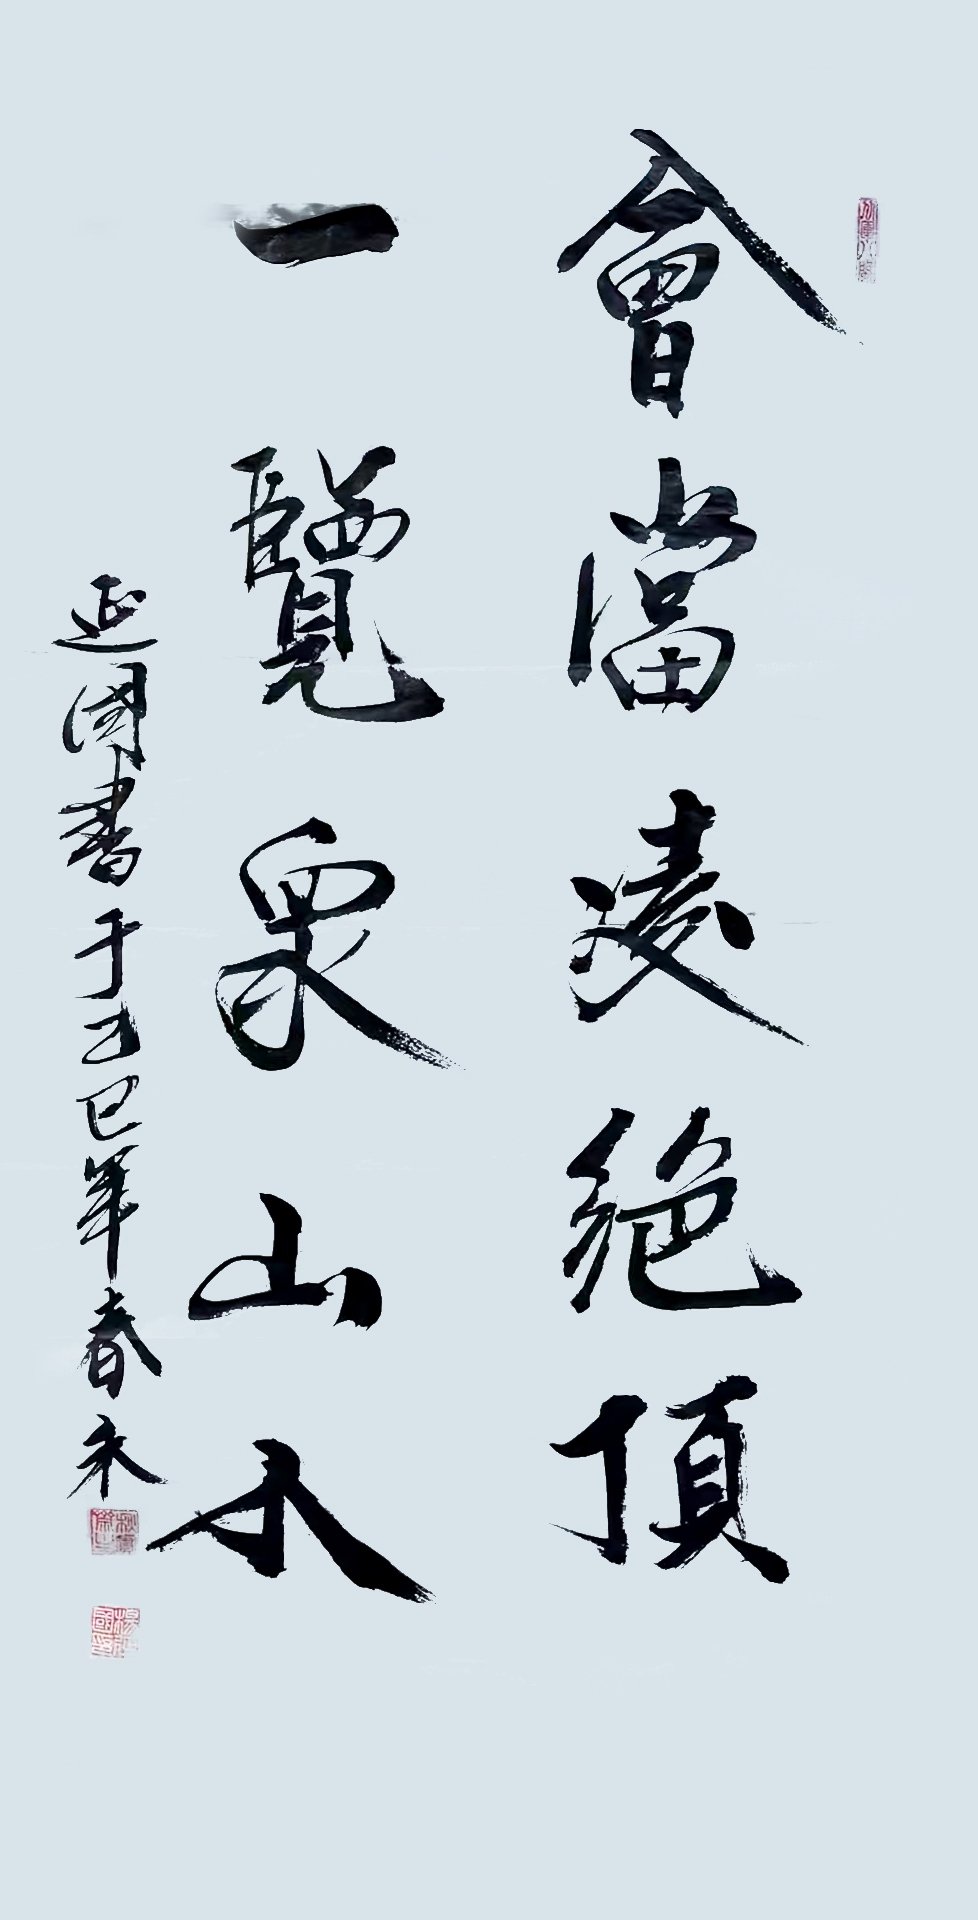 會當凌絕頂
一覽眾山小
延國書于乙巳年春末